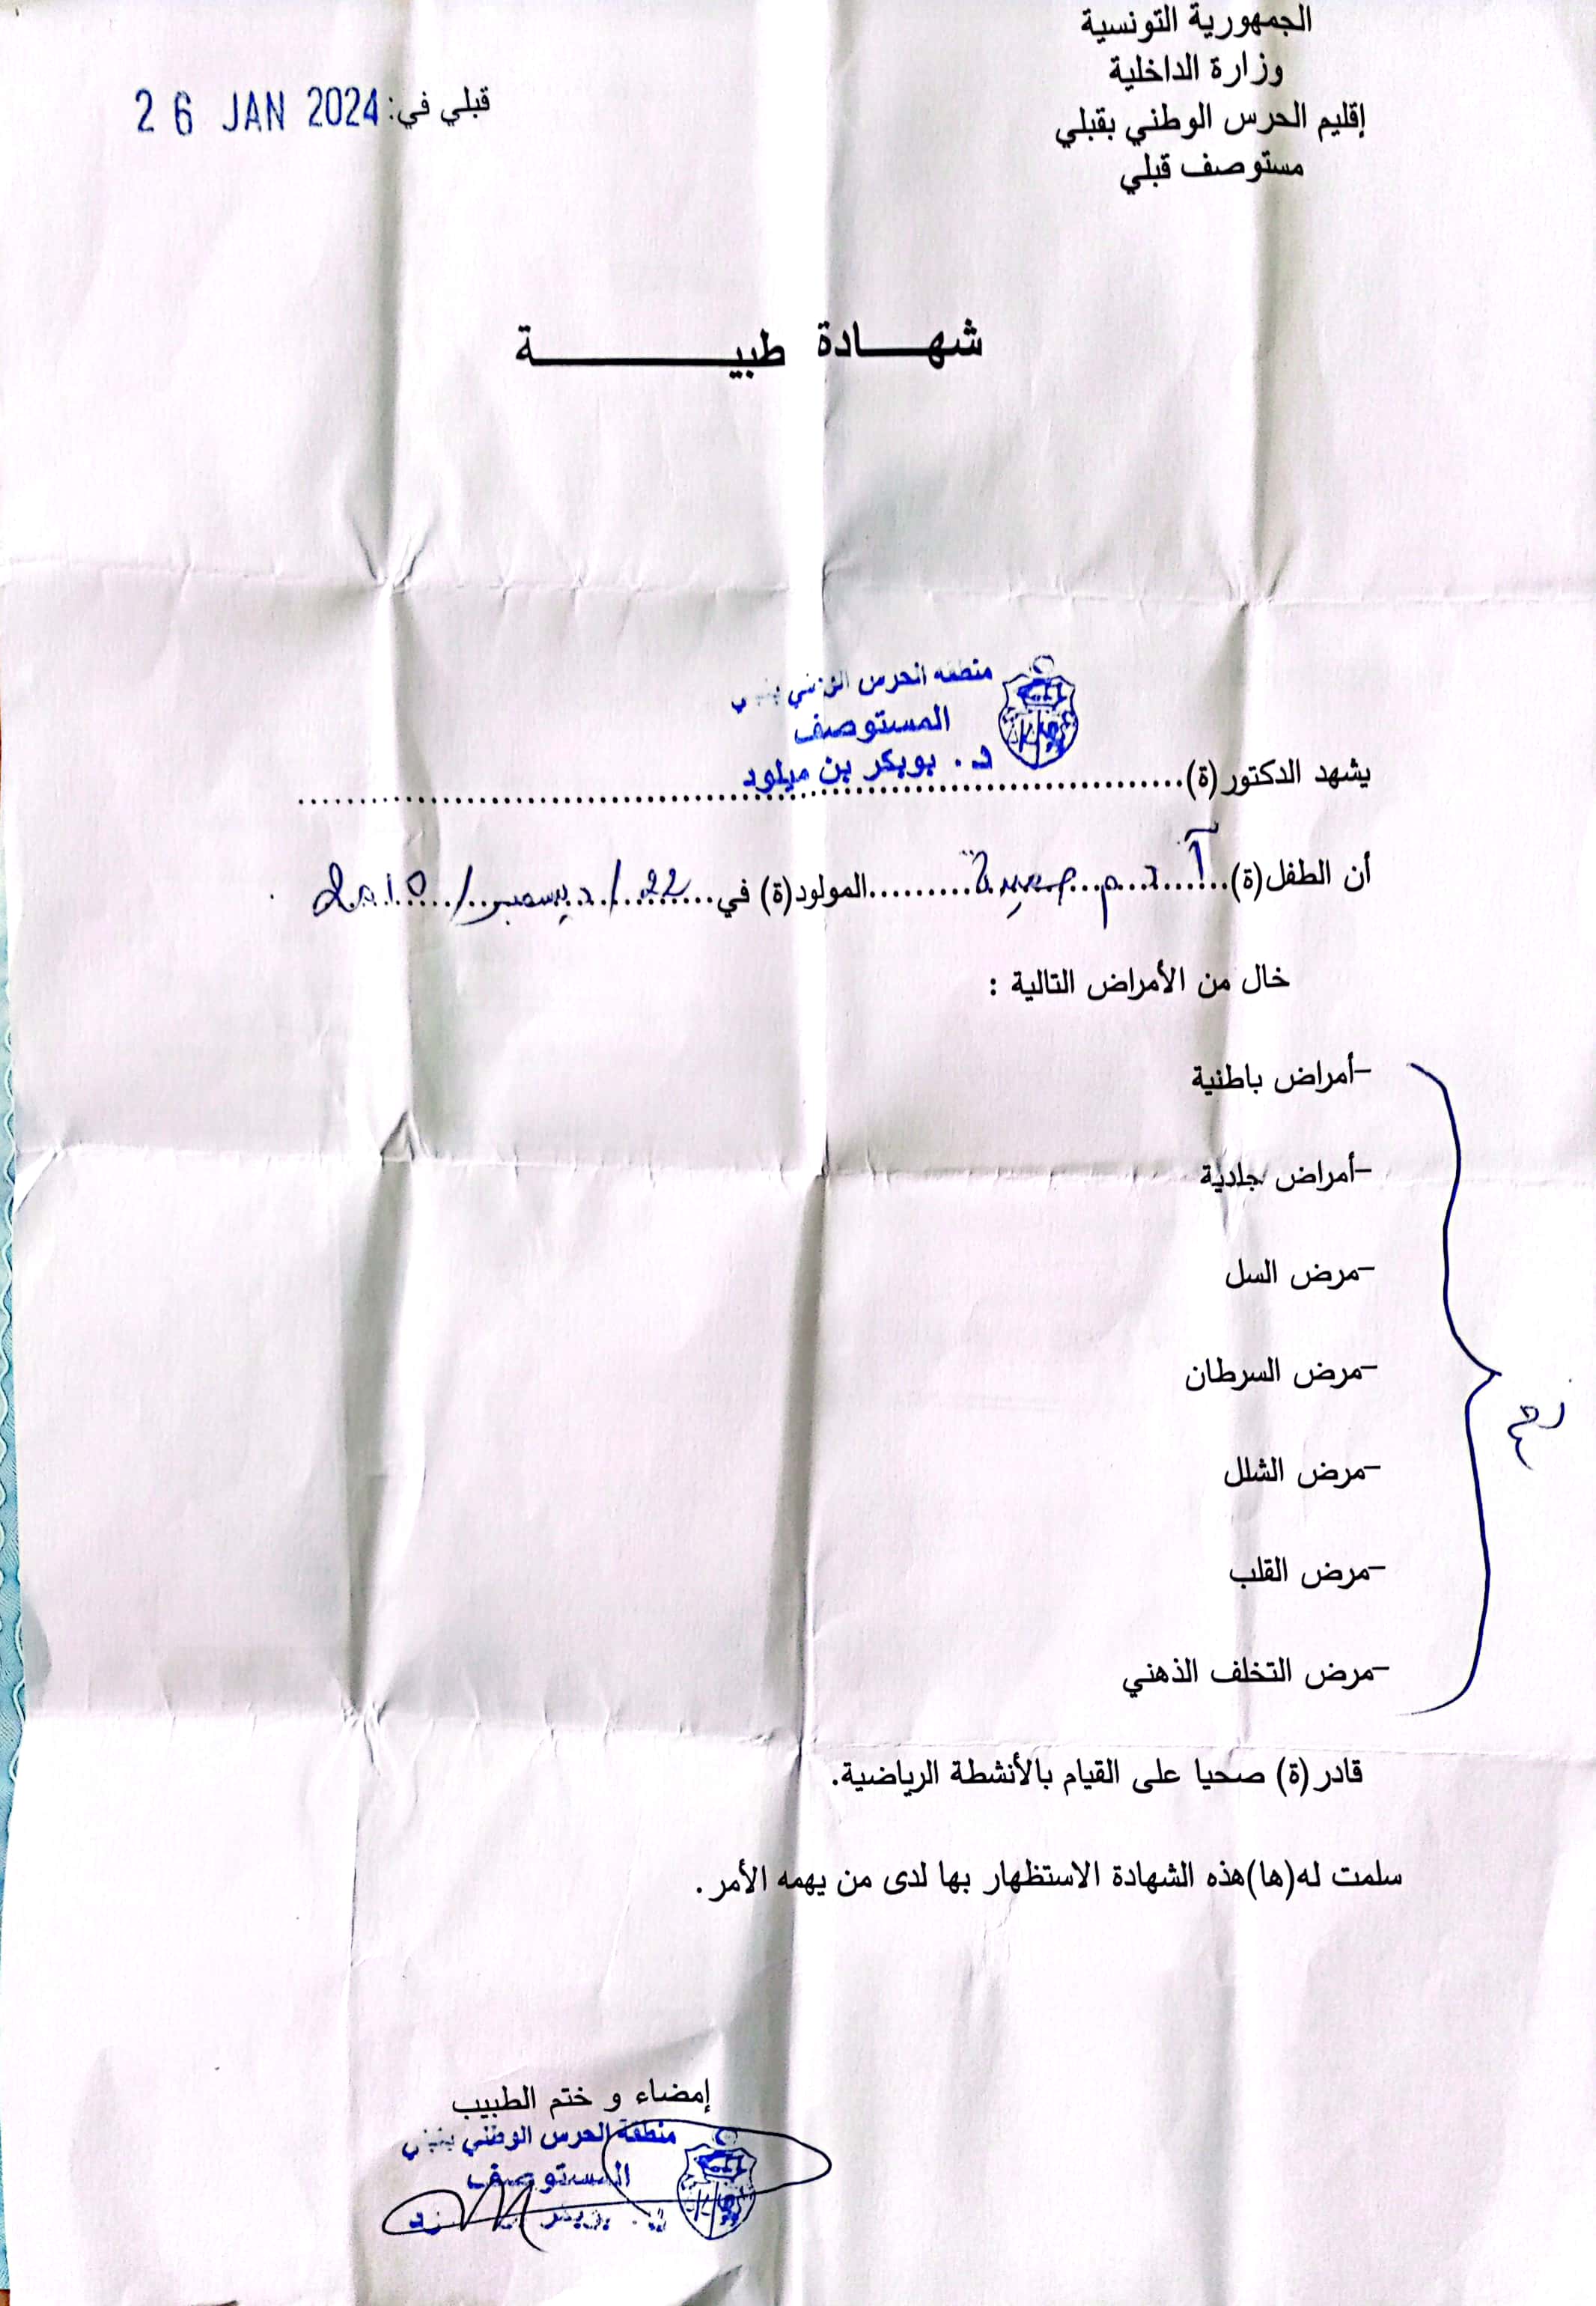 الجمهورية التونسية
وزارة الداخلية
إقليم الحرس الوطني بقبلي
مستوصف قبلي
قبلي في: 26 JAN 2024
شهــادة طبيـــــة
منطقة الحرس الوطني
المستوصف
د. بوبكر بن ميلود
يشهد الدكتور(ة)
أن الطفل(ة) آدم المولود(ة) في 22 / ديسمبر / 2010
خال من الأمراض التالية :
-أمراض باطنية
-أمراض جلدية
-مرض السل
-مرض السرطان
-مرض الشلل
-مرض القلب
-مرض التخلف الذهني
قادر(ة) صحيا على القيام بالأنشطة الرياضية.
سلمت له(ها)هذه الشهادة الاستظهار بها لدى من يهمه الأمر.
إمضاء و ختم الطبيب
منطقة الحرس الوطني
المستوصف